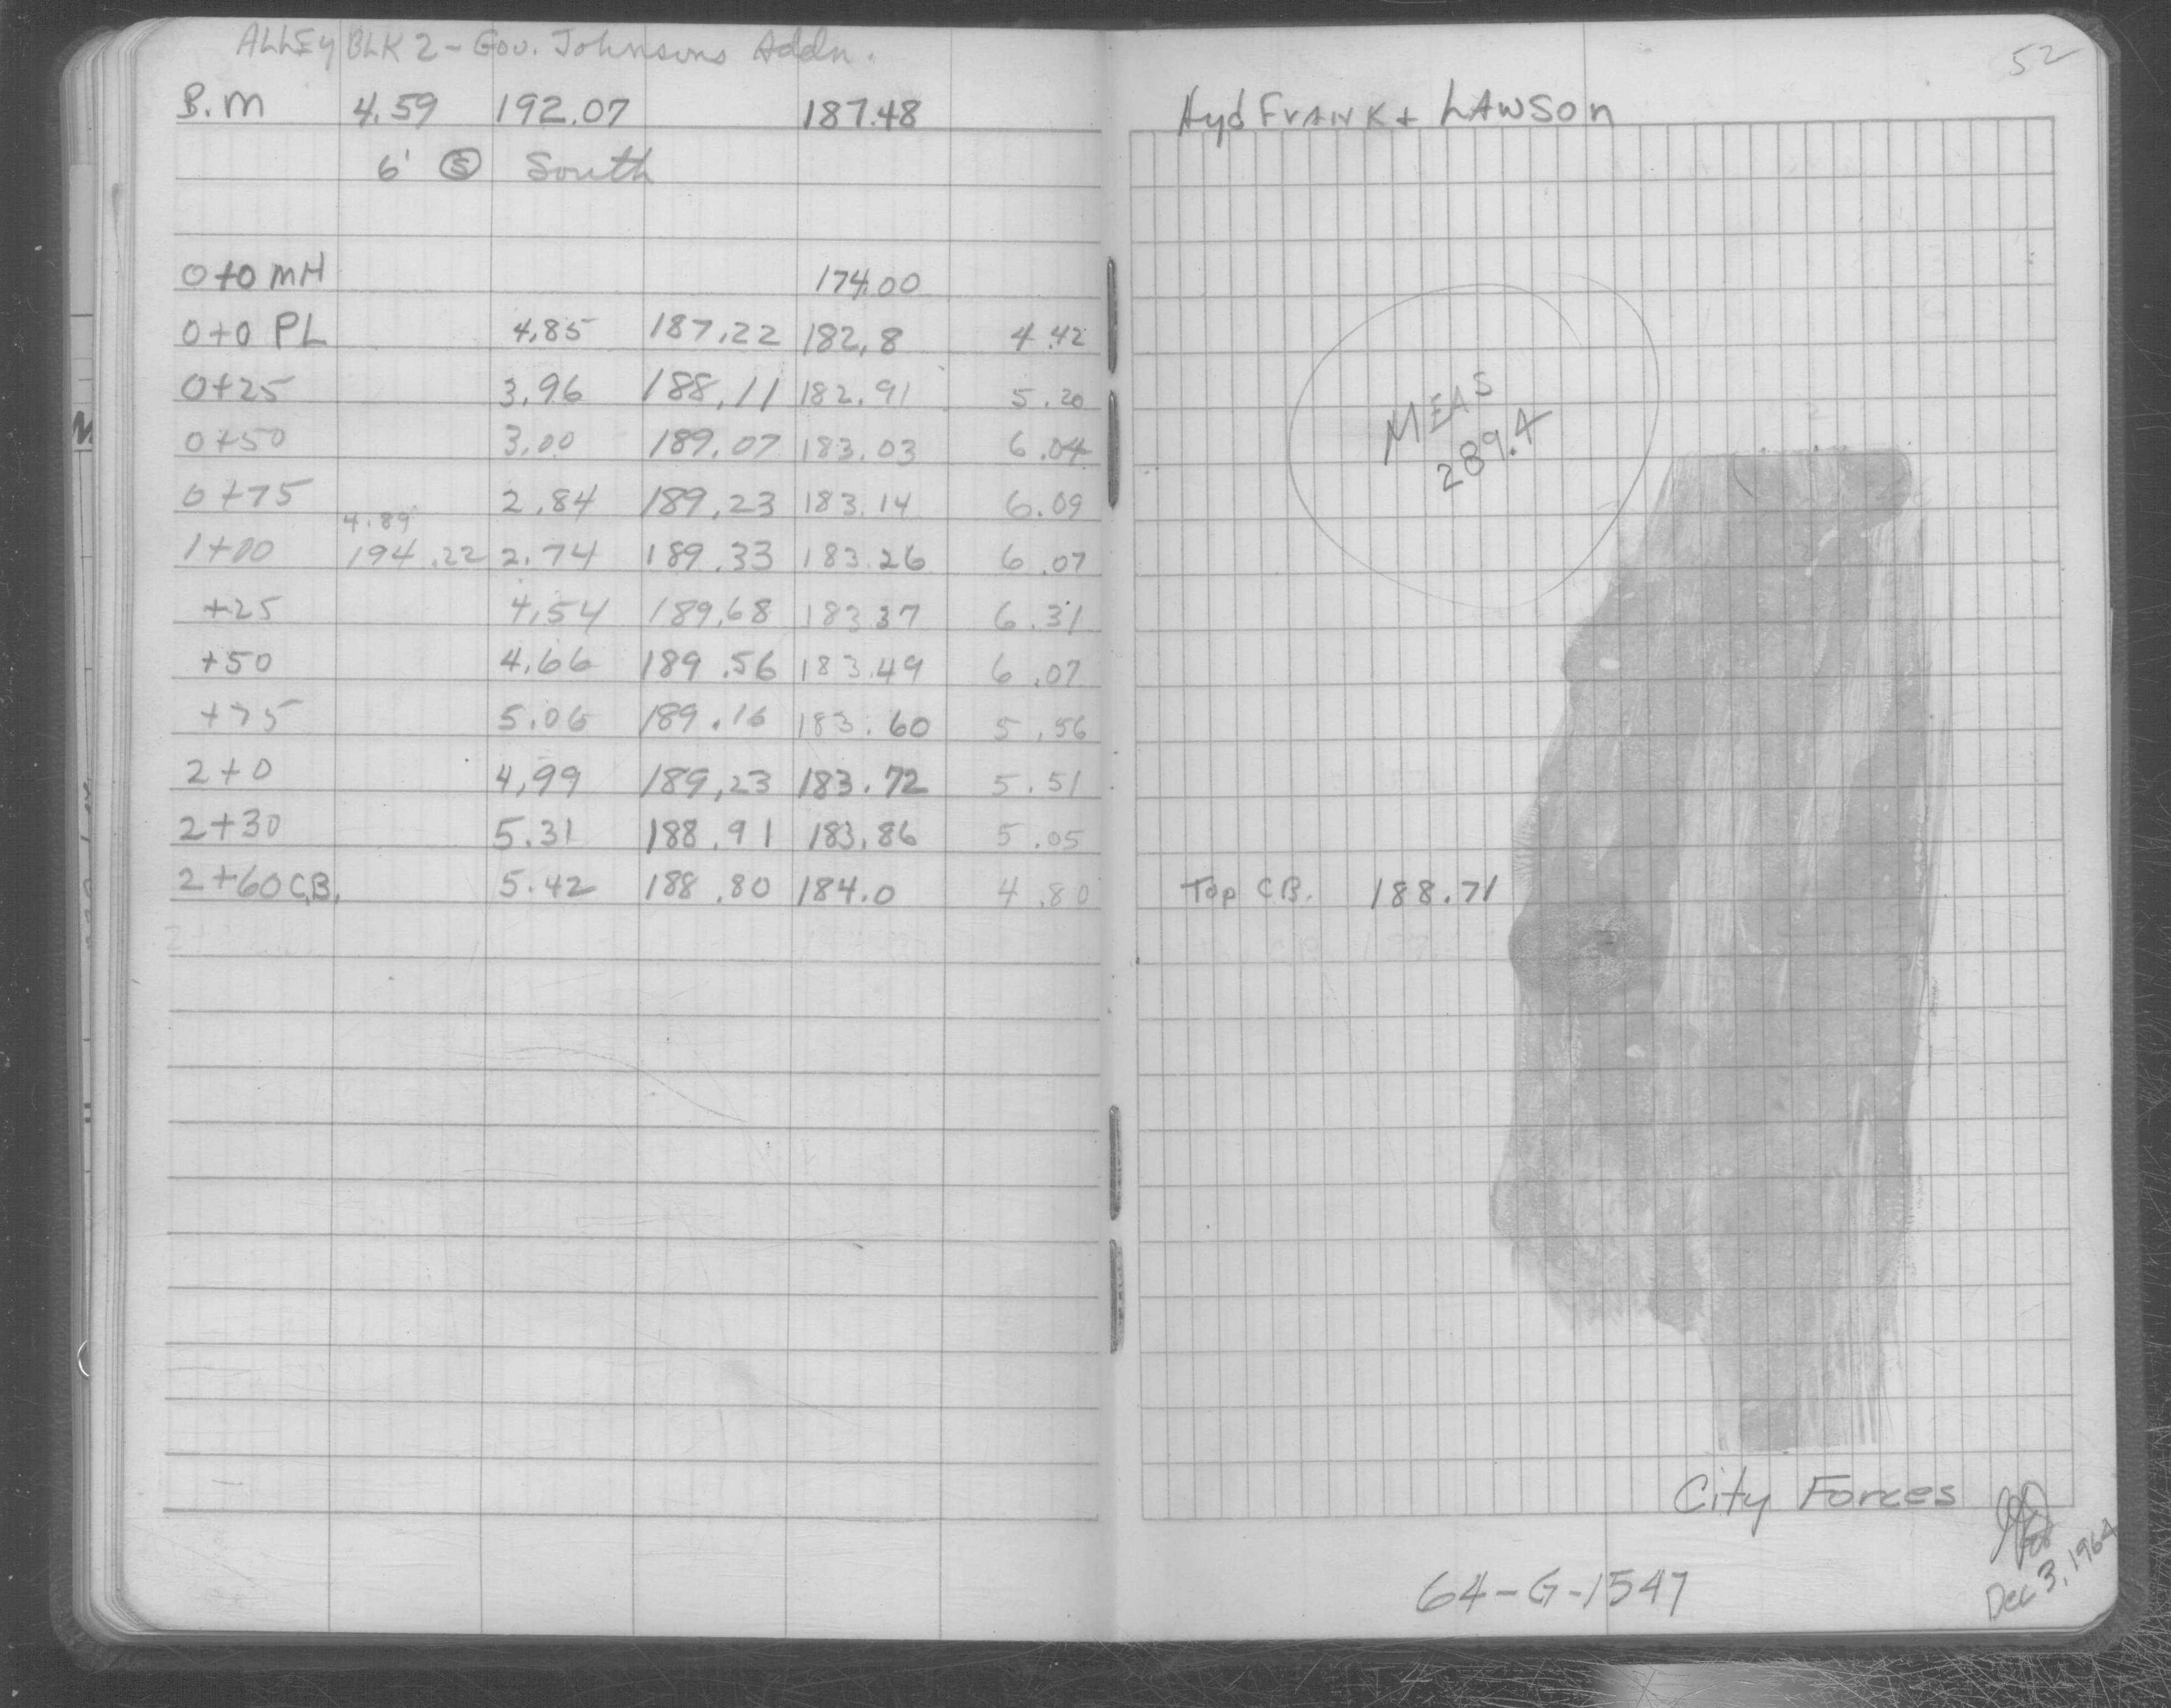 ALLEY BLK 2 - Gov. Johnsons Addn.
B.M 4.59 192.07 187.48
6' S South
0+0 MH 174.00
0+0 PL 4.85 187.22 182.8 4.42
0+25 3.96 188.11 182.91 5.20
0+50 3.00 189.07 183.03 6.04
0+75 2.84 189.23 183.14 6.09
4.89
1+00 194.22 2.74 189.33 183.26 6.07
+25 4.54 189.68 183.37 6.31
+50 4.66 189.56 183.49 6.07
+75 5.06 189.16 183.60 5.56
2+0 4.99 189.23 183.72 5.51
2+30 5.31 188.91 183.86 5.05
2+60 C.B. 5.42 188.80 184.0 4.80
52
Hyd FRANK + LAWSON
MEAS
289.4
Top C.B. 188.71
City Forces
Dec 3, 1964
64-G-1547